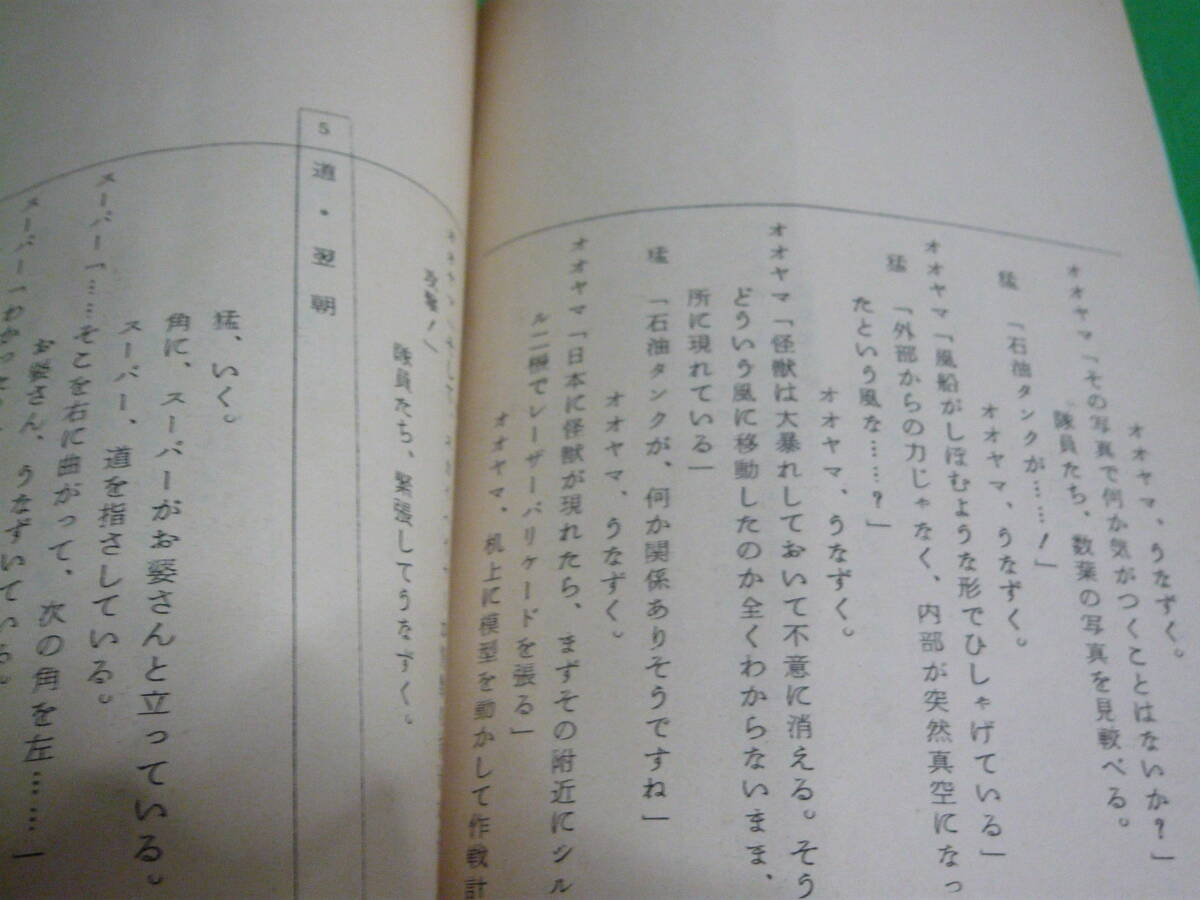 オオヤマ、うなずく。
オオヤマ「その写真で何か気がつくことはないか?」
隊員たち、数葉の写真を見較べる。
猛　「石油タンクが……!」
オオヤマ、うなずく。
オオヤマ「風船がしぼむような形でひしゃげている」
猛　「外部からの力じゃなく、内部が突然真空になっ
たという風な……?」
オオヤマ、うなずく。
オオヤマ「怪獣は大暴れしておいて不意に消える。そう
どういう風に移動したのか全くわからないまま、
所に現れている」
猛　「石油タンクが、何か関係ありそうですね」
オオヤマ、うなずく。
オオヤマ「日本に怪獣が現れたら、まずその附近にシル
ル二機でレーザーバリケードを張る」
オオヤマ、机上に模型を動かして作戦計
オオヤマ「そして、
攻撃!」
隊員たち、緊張してうなずく。
5　道・翌朝
猛、いく。
角に、スーパーがお婆さんと立っている。
スーパー、道を指さしている。
スーパー「……そこを右に曲がって、次の角を左……」
お婆さん、うなずいている。
スーパー「わかって